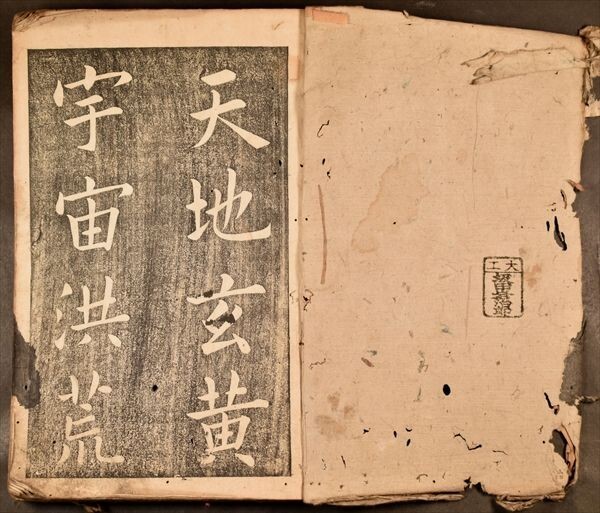 天地玄黄
宇宙洪荒
大工